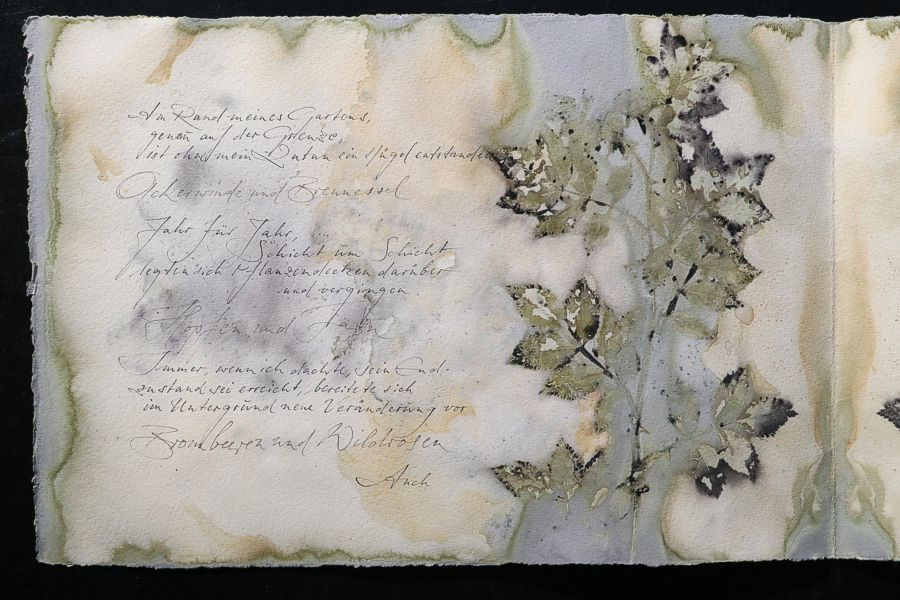 Am Rand meines Gartens,
genau auf der Grenze,
ist ohne mein Zutun ein Hügel entstanden
Ackerwinde und Brennessel
Jahr für Jahr,
Schicht um Schicht
legten sich Pflanzendecken darüber
und vergingen.
Hopfen und Farn
Immer, wenn ich dachte, sein End-
zustand sei erreicht, bereitete sich
im Untergrund neue Veränderung vor
Brombeeren und Wildrosen
Auch